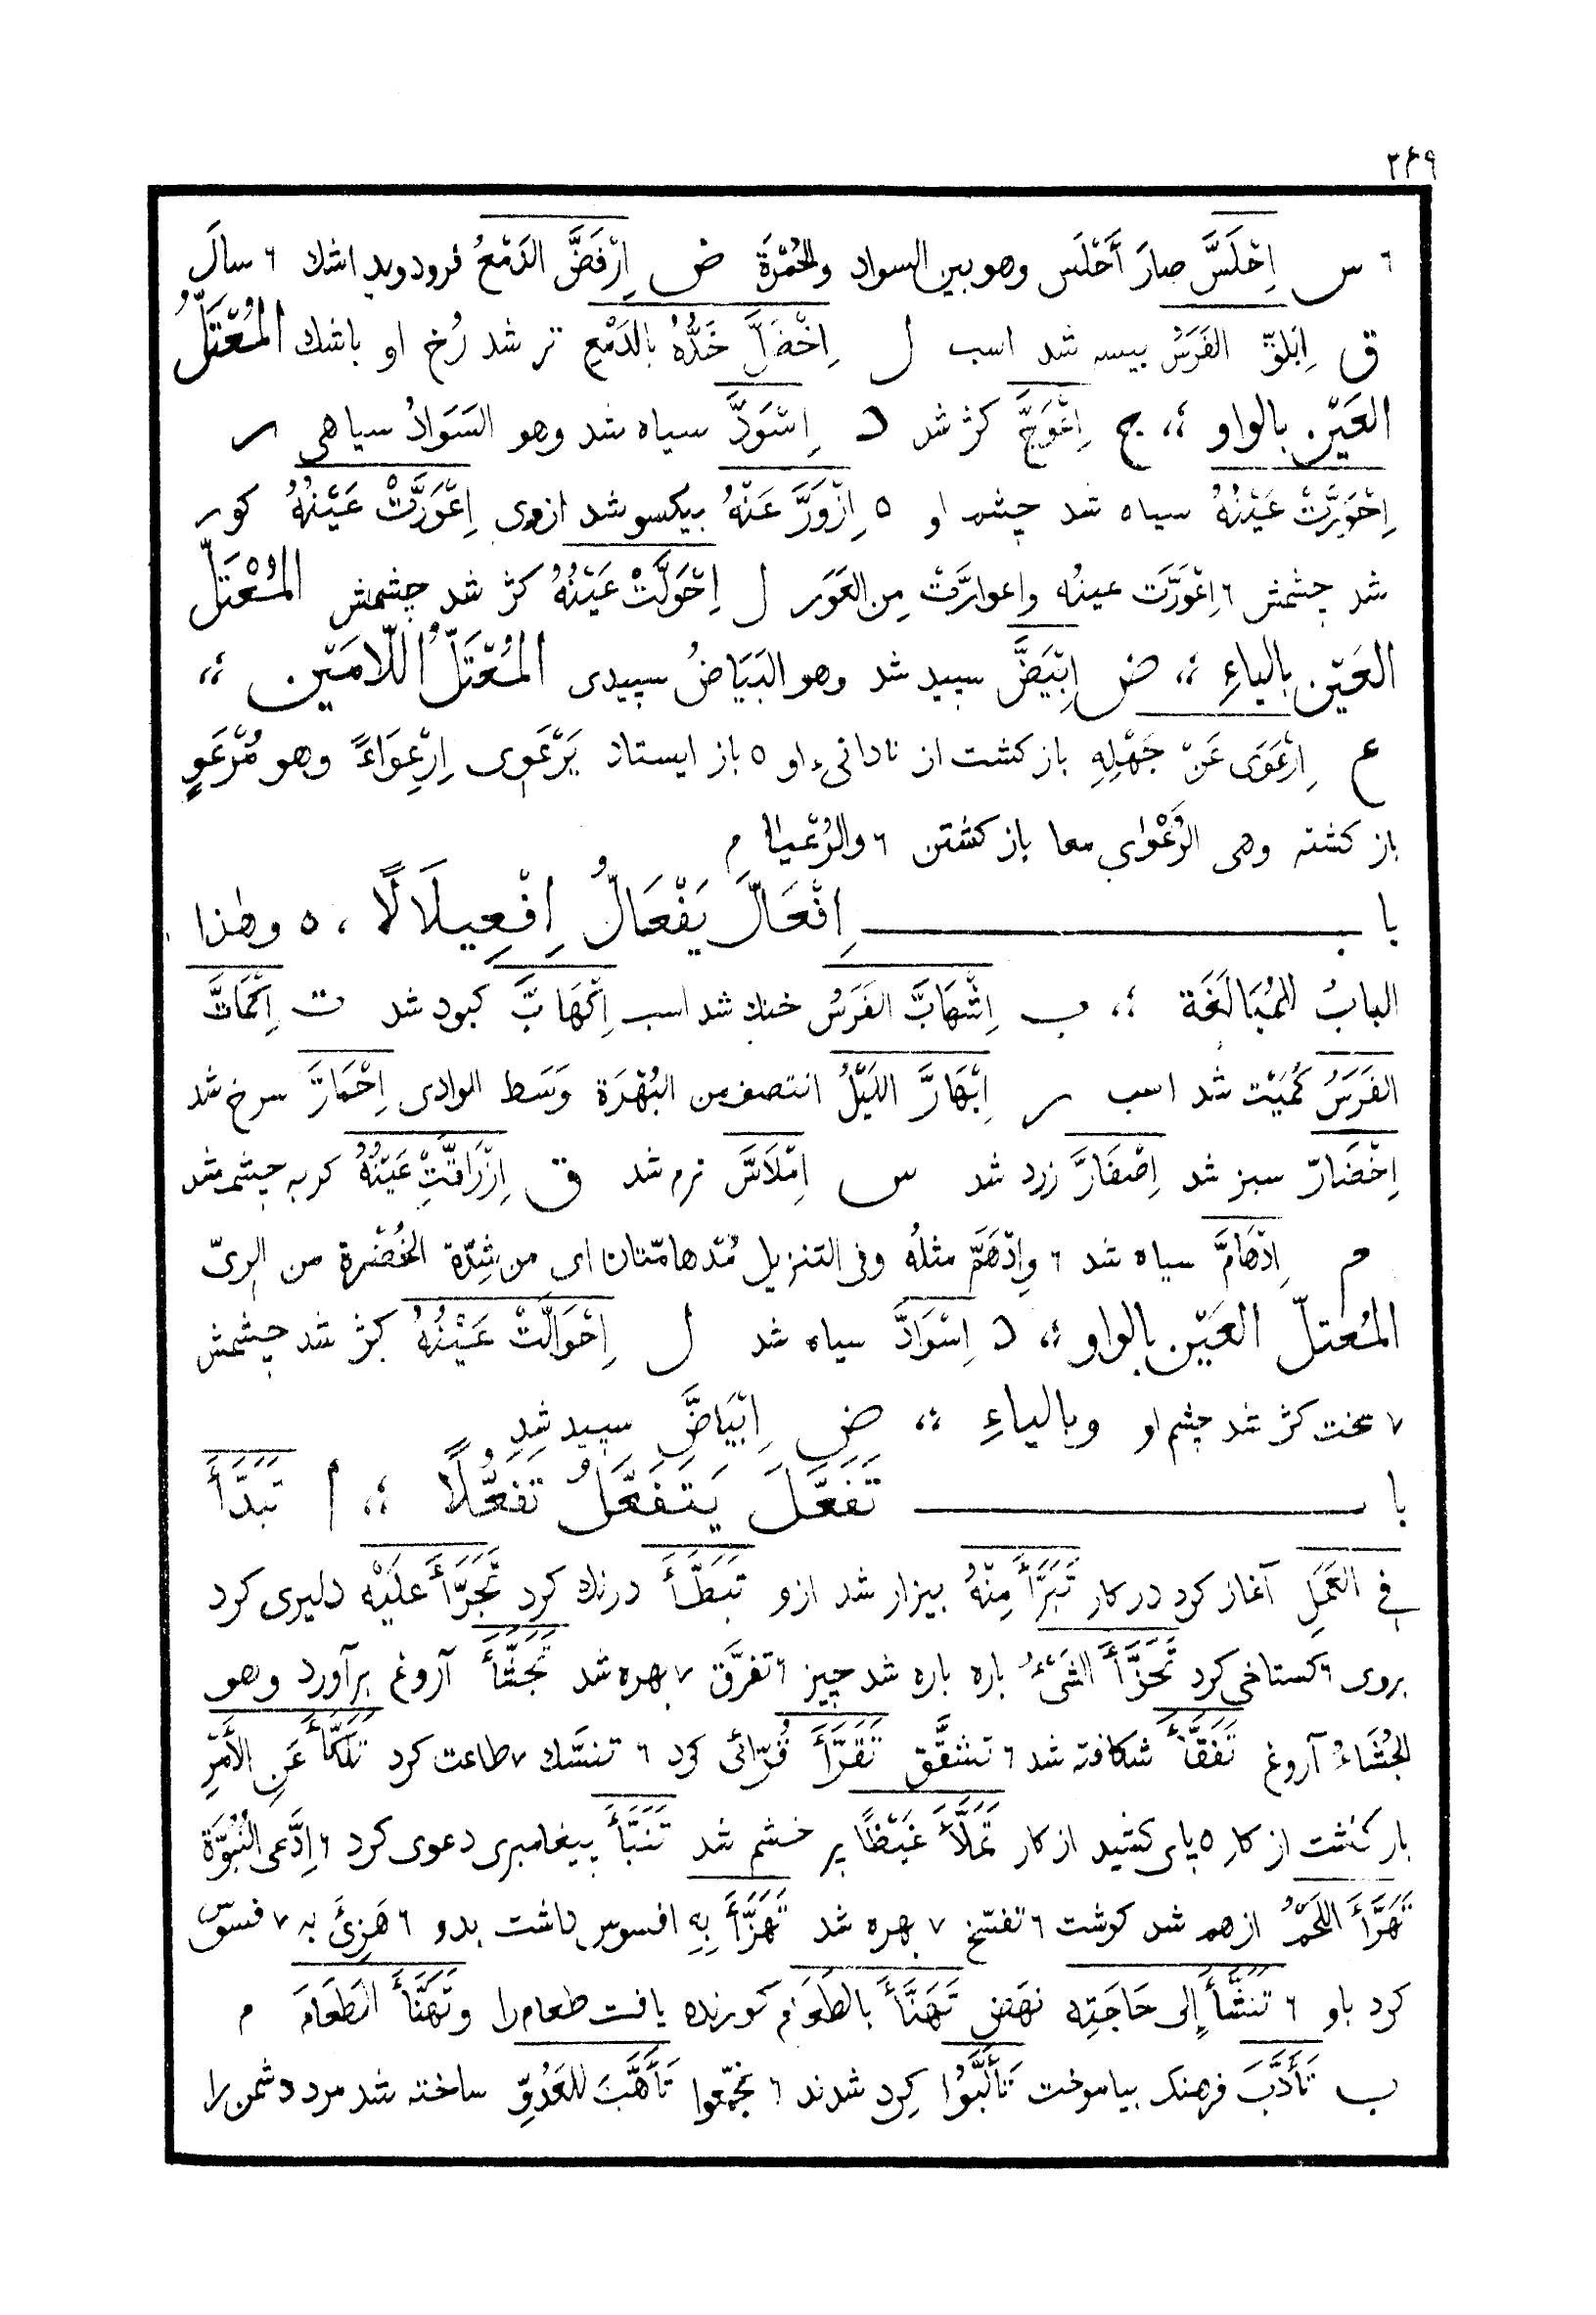 ۲۶۹
٦ س اِحْلَسَّ صارَ أَحْلَس وهو بين السواد والحُمْرَة ض اِرْفَضَّ الدَمْعُ فرودويد اشك ٦ سالَ
ق اِبْلَقَّ الفَرَسُ بيسه شد اسب ل اِخْضَلَّ خَدُّهُ بالدَمْعِ تر شد رُخ او باشك المُعْتَلُّ
العَيْن بالواو ؛، ج اِعْوَجَّ كژ شد د اِسْوَدَّ سياه شد وهو السَوَادُ سياهى ر
اِحْوَرَّتْ عَيْنُهُ سياه شد چشم او ٥ اِزْوَرَّ عَنْهُ بيكسو شد ازوى اِعْوَرَّتْ عَيْنُهُ كور
شد چشمش ٦ اِعْوَرَّت عينُه واعوارَّتْ مِن العَوَر ل اِحْوَلَّتْ عَيْنُهُ كژ شد چشمش المُعْتَلُّ
العَيْن بالياءِ ؛، ض اِبْيَضَّ سپيد شد وهو البَيَاضُ سپيدى المُعْتَلُّ اللّامَيْن ؛،
ع اِرْعَوَى عَنْ جَهْلِهِ باز كشت از نادانىء او ٥ باز ايستاد يَرْعَوِى اِرْعِوَاءً وهو مُرْعَوٍ
باز كشته وهى الرُعْوٰى معا باز كشتن ٦ والرُعْيا م
باب اِفْعَالَّ يَفْعَالُّ اِفْعِيلَالًا ، ٥ وهٰذا
البابُ للمُبَالَغَة ؛، ب اِشْهَابَّ الفَرَسُ خنك شد اسب اِكْهَابَّ كبود شد ت اِكْمَاتَّ
الفَرَسُ كُمَيْت شد اسب ر اِبْهَارَّ اللَيْلُ انتصف من البُهْرَة وَسَط الوادى اِحْمَارَّ سرخ شد
اِخْضَارَّ سبز شد اِصْفَارَّ زرد شد س اِمْلَاسَّ نرم شد ق اِزْرَاقَّتْ عَيْنُهُ كربه چشم شد
م اِدْهَامَّ سياه شد ٦ وادْهَمَّ مثلُه وفى التنزيل مُدْهامّتان اى من شِدّة الخُضْرة من الرىّ
المُعتلّ العَيْن بالواو ؛، د اِسْوَادَّ سياه شد ل اِحْوَالَّتْ عَيْنُهُ كژ شد چشمش
٧ سخت كژ شد چشم او وبالياءِ ؛، ض اِبْيَاضَّ سپيد شد
باب تَفَعَّلَ يَتَفَعَّلُ تَفَعُّلًا ؛، أ تَبَدَّأَ
فى العَمَلِ آغاز كرد در كار تَبَرَّأَ مِنْهُ بيزار شد ازو تَبَطَّأَ درنك كرد تَجَرَّأَ علَيْه دليرى كرد
بروى ٦ كستاخى كرد تَجَزَّأَ الشَىْءُ باره باره شد چيز ٦ تفرَّق ٧ بهره شد تَجَشَّأَ آروغ برآورد وهو
الجُشَاءُ آروغ تَفَقَّأَ شكافته شد ٦ تشقَّق تَقَرَّأَ قُرّائى كرد ٦ تنسَّك ٧ طاعت كرد تَلَكَّأَ عَنِ الأَمْرِ
باز كشت از كار ٥ پاى كشيد از كار تَمَلَّأَ غَيْظًا پر خشم شد تَنَبَّأَ پيغامبرى دعوى كرد ٦ اِدَّعى النُبُوَّة
تَهَرَّأَ اللَحْمُ از هم شد كوشت ٦ تفسّخ ٧ بهره شد تَهَزَّأَ بِهِ افسوس داشت بدو ٦ هَزِئَ به ٧ فسوس
كرد باو ٦ تَنَشَّأَ إلى حَاجَتِه نهض تَهَنَّأَ بالطَعَامِ كورنده يافت طعام را وتَهَنَّأَ الطَعَامَ م
ب تَأَدَّبَ فرهنك بياموخت تَأَلَّبُوا كِرد شدند ٦ تجمّعوا تَأَهَّبَ للعَدُوِّ ساخته شد مرد دشمن را